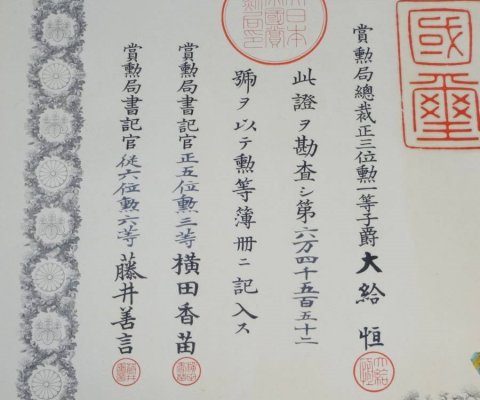 國璽
賞勲局總裁正三位勲一等子爵大給恒
此證ヲ勘査シ第六万四千五百五十二
號ヲ以テ勲等簿冊ニ記入ス
賞勲局書記官正五位勲三等横田香苗
賞勲局書記官従六位勲六等藤井善言